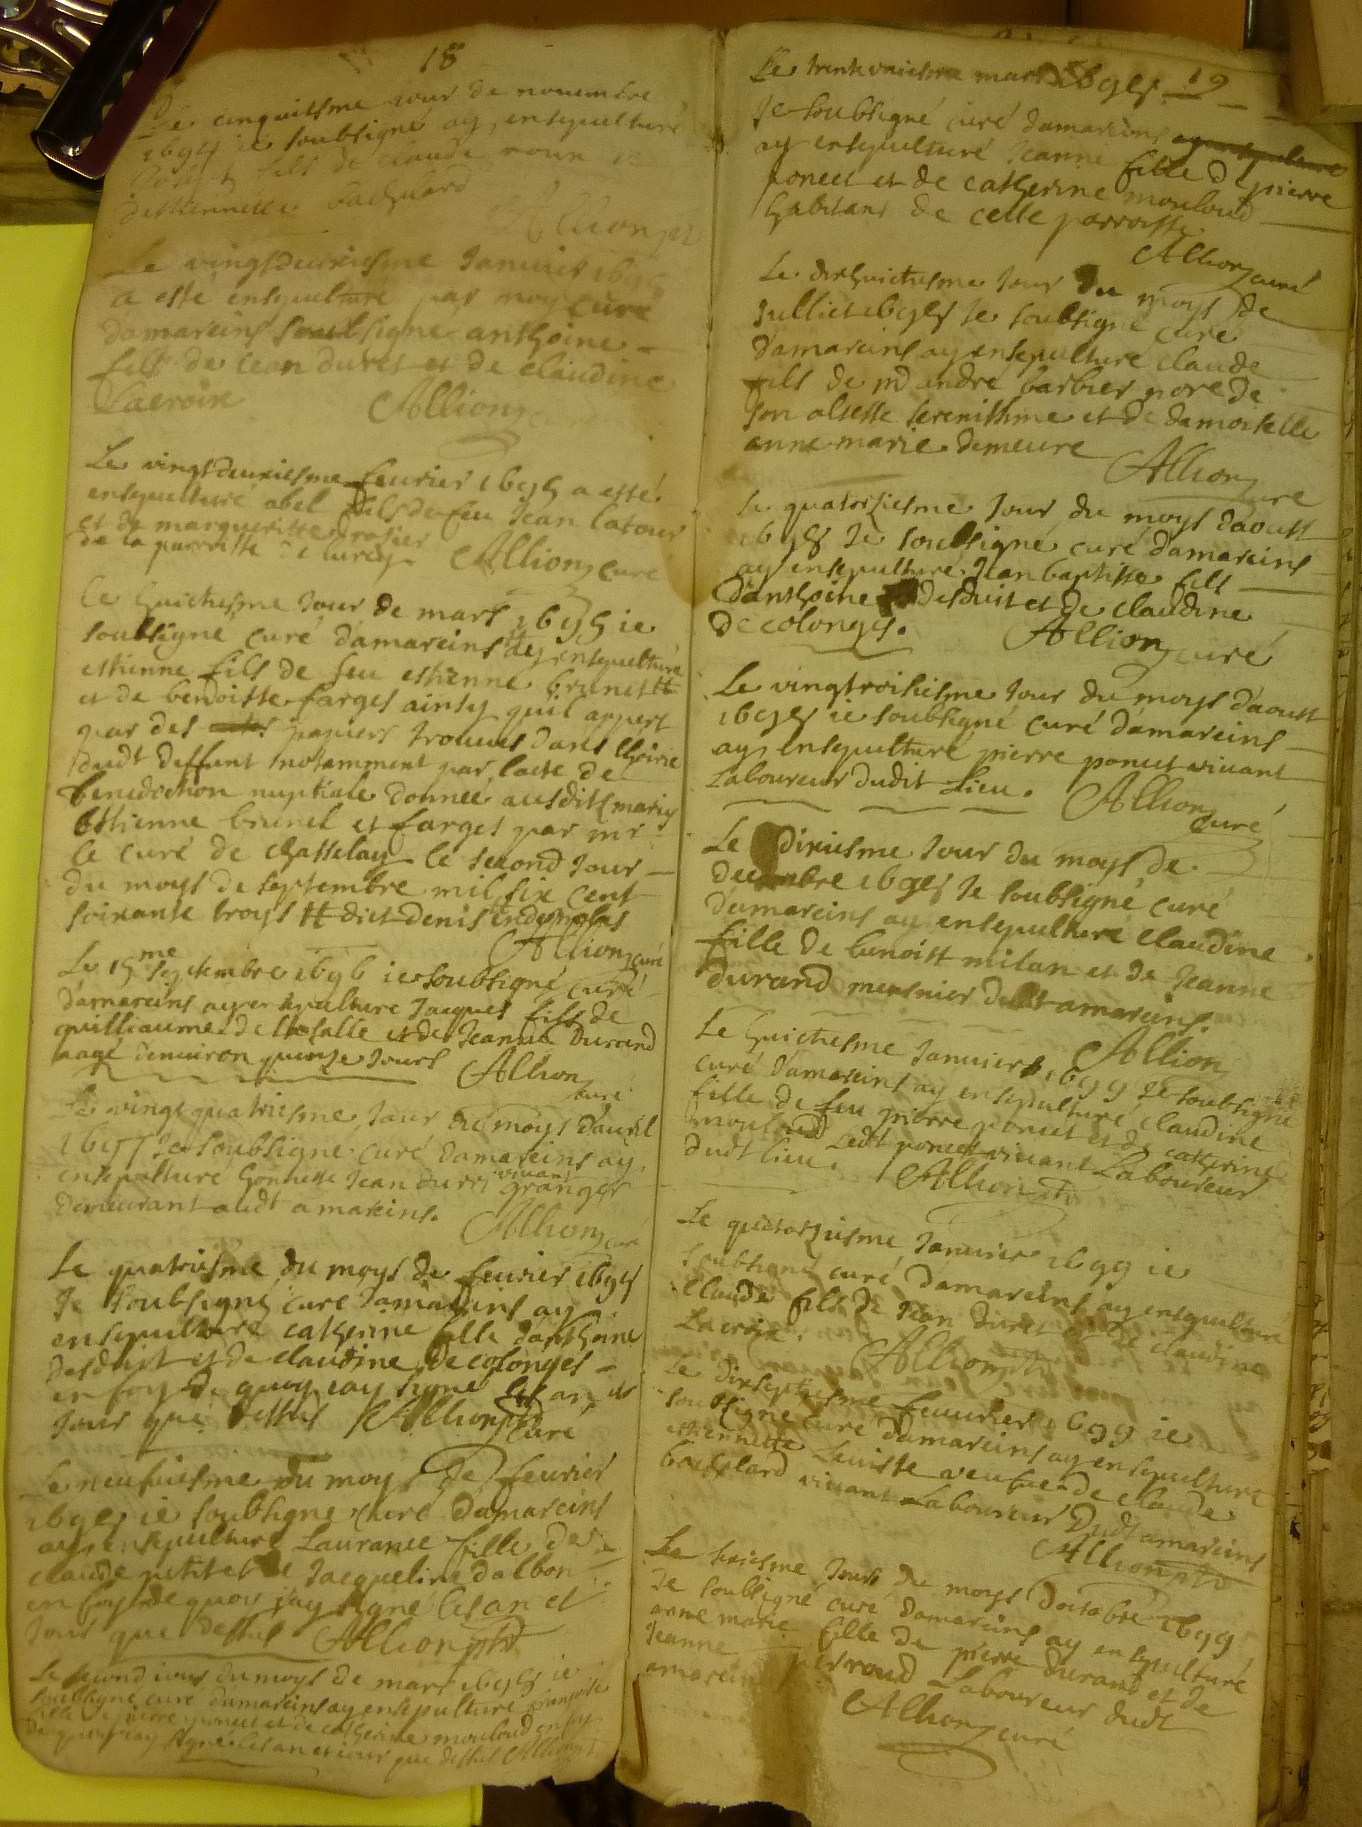 18
Le cinquiesme jour de nouembre
ie soubsigné ay ensepulturé
fils de claude
Allion
Le vingtdeuxiesme Januier 1695
a esté ensepulturé par moy curé
damareins soubsigne anthoine
fils de Jean duret et de claudine
Lacroix Allion
Le vingtdeuxiesme feurier 1695 a esté
ensepulturé abel fils de feu Jean latour
et de margueritte
de la parroisse de lurcy Allion curé
Le huictiesme Jour de mars 1695 ie
soubsigné curé damareins ay ensepulturé
estienne fils de feu estienne brunet
et de benoiste farges ainsy quil appert
par des papiers trouués dans
dudt deffunt notamment par lacte de
benediction nuptiale donnee ausdits mariés
Estienne brunel et farges par mr
le curé de chasselay le second Jour
du moys de septembre mil six cent
soixante troys dict denis
Allion curé
Le 15me septembre 1696 ie soubsigné curé
damareins ay ensepulturé Jacques fils de
guilliaume de lasalle et de Jeanne Durand
aagé denuiron quinze Jours Allion
curé
Le vingt quatriesme Jour du moys dauril
1697 Je soubsigne curé damareins ay
ensepulturé honneste Jean duret viuant granger
demeurant audt amareins. Allion curé
Le quatriesme du moys de feurier 1698
Je soubsigné curé damareins ay
ensepulturé catherine fille danthoine
desduit et de claudine decolonges
en foy de quoy iay signé les an et
Jour que dessus Allion
curé
Le neufuiesme du moys de feurier
1698 ie soubsigne curé damareins
ay ensepulturé Laurance fille de
claude petit et de Jacqueline dalbon
en foy de quoy iay signé les an et
Jour que dessus Allion
Le second iour du moys de mars 1698 ie
soubsigne curé damareins ay ensepulturé françoise
fille de pierre poncet et de catherine mouloud en foy
de quoy iay signé les an et iour que dessus Allion
Le trentevniesme mars 1698 19
Je soubsigné curé damareins
ay ensepulturé Jeanne fille de pierre
poncet et de catherine mouloud
habitans de cette parroisse
Allion curé
Le dixhuictiesme Jour du moys de
Julliet 1698 Je soubsigné curé
damareins ay ensepulturé claude
fils de me andré barbier nore de
son altesse serenissime et de damoiselle
anne marie demeure
Allion curé
Le quatorsiesme Jour du moys daoust
1698 Je soubsigne curé damareins
ay ensepulturé Jean baptiste fils
danthoine desduit et de claudine
decolonges. Allion curé
Le vingtroisiesme Jour du moys daoust
1698 ie soubsigné curé damareins
ay ensepulturé pierre poncet viuant
Laboureur dudit Lieu. Allion
curé
Le dixiesme Jour du moys de
decembre 1698 Je soubsigné curé
damareins ay ensepulturé claudine
fille de benoist milan et de Jeanne
durand meusnier dudt amareins.
Allion
Le huictiesme Januier 1699 Je soubsigné
curé damareins ay ensepulturé claudine
fille de feu pierre poncet et de catherine
mouloud ledt poncet viuant Laboureur
dudt lieu. Allion
Le quatorziesme Januier 1699 ie
soubsigné curé damareins ay ensepulturé
claude fils de Jean duret et de claudine
Lacroix. Allion
Le dixseptiesme feurier 1699 ie
soubsigné curé damareins ay ensepulturé
estiennette veufue de claude
viuant Laboureur dudt amareins
Allion
Le Jour du moys doctobre 1699
Je soubsigné curé damareins ay ensepulturé
anne marie fille de pierre durand et de
Jeanne perroud Laboureur dudt
amareins
Allion curé